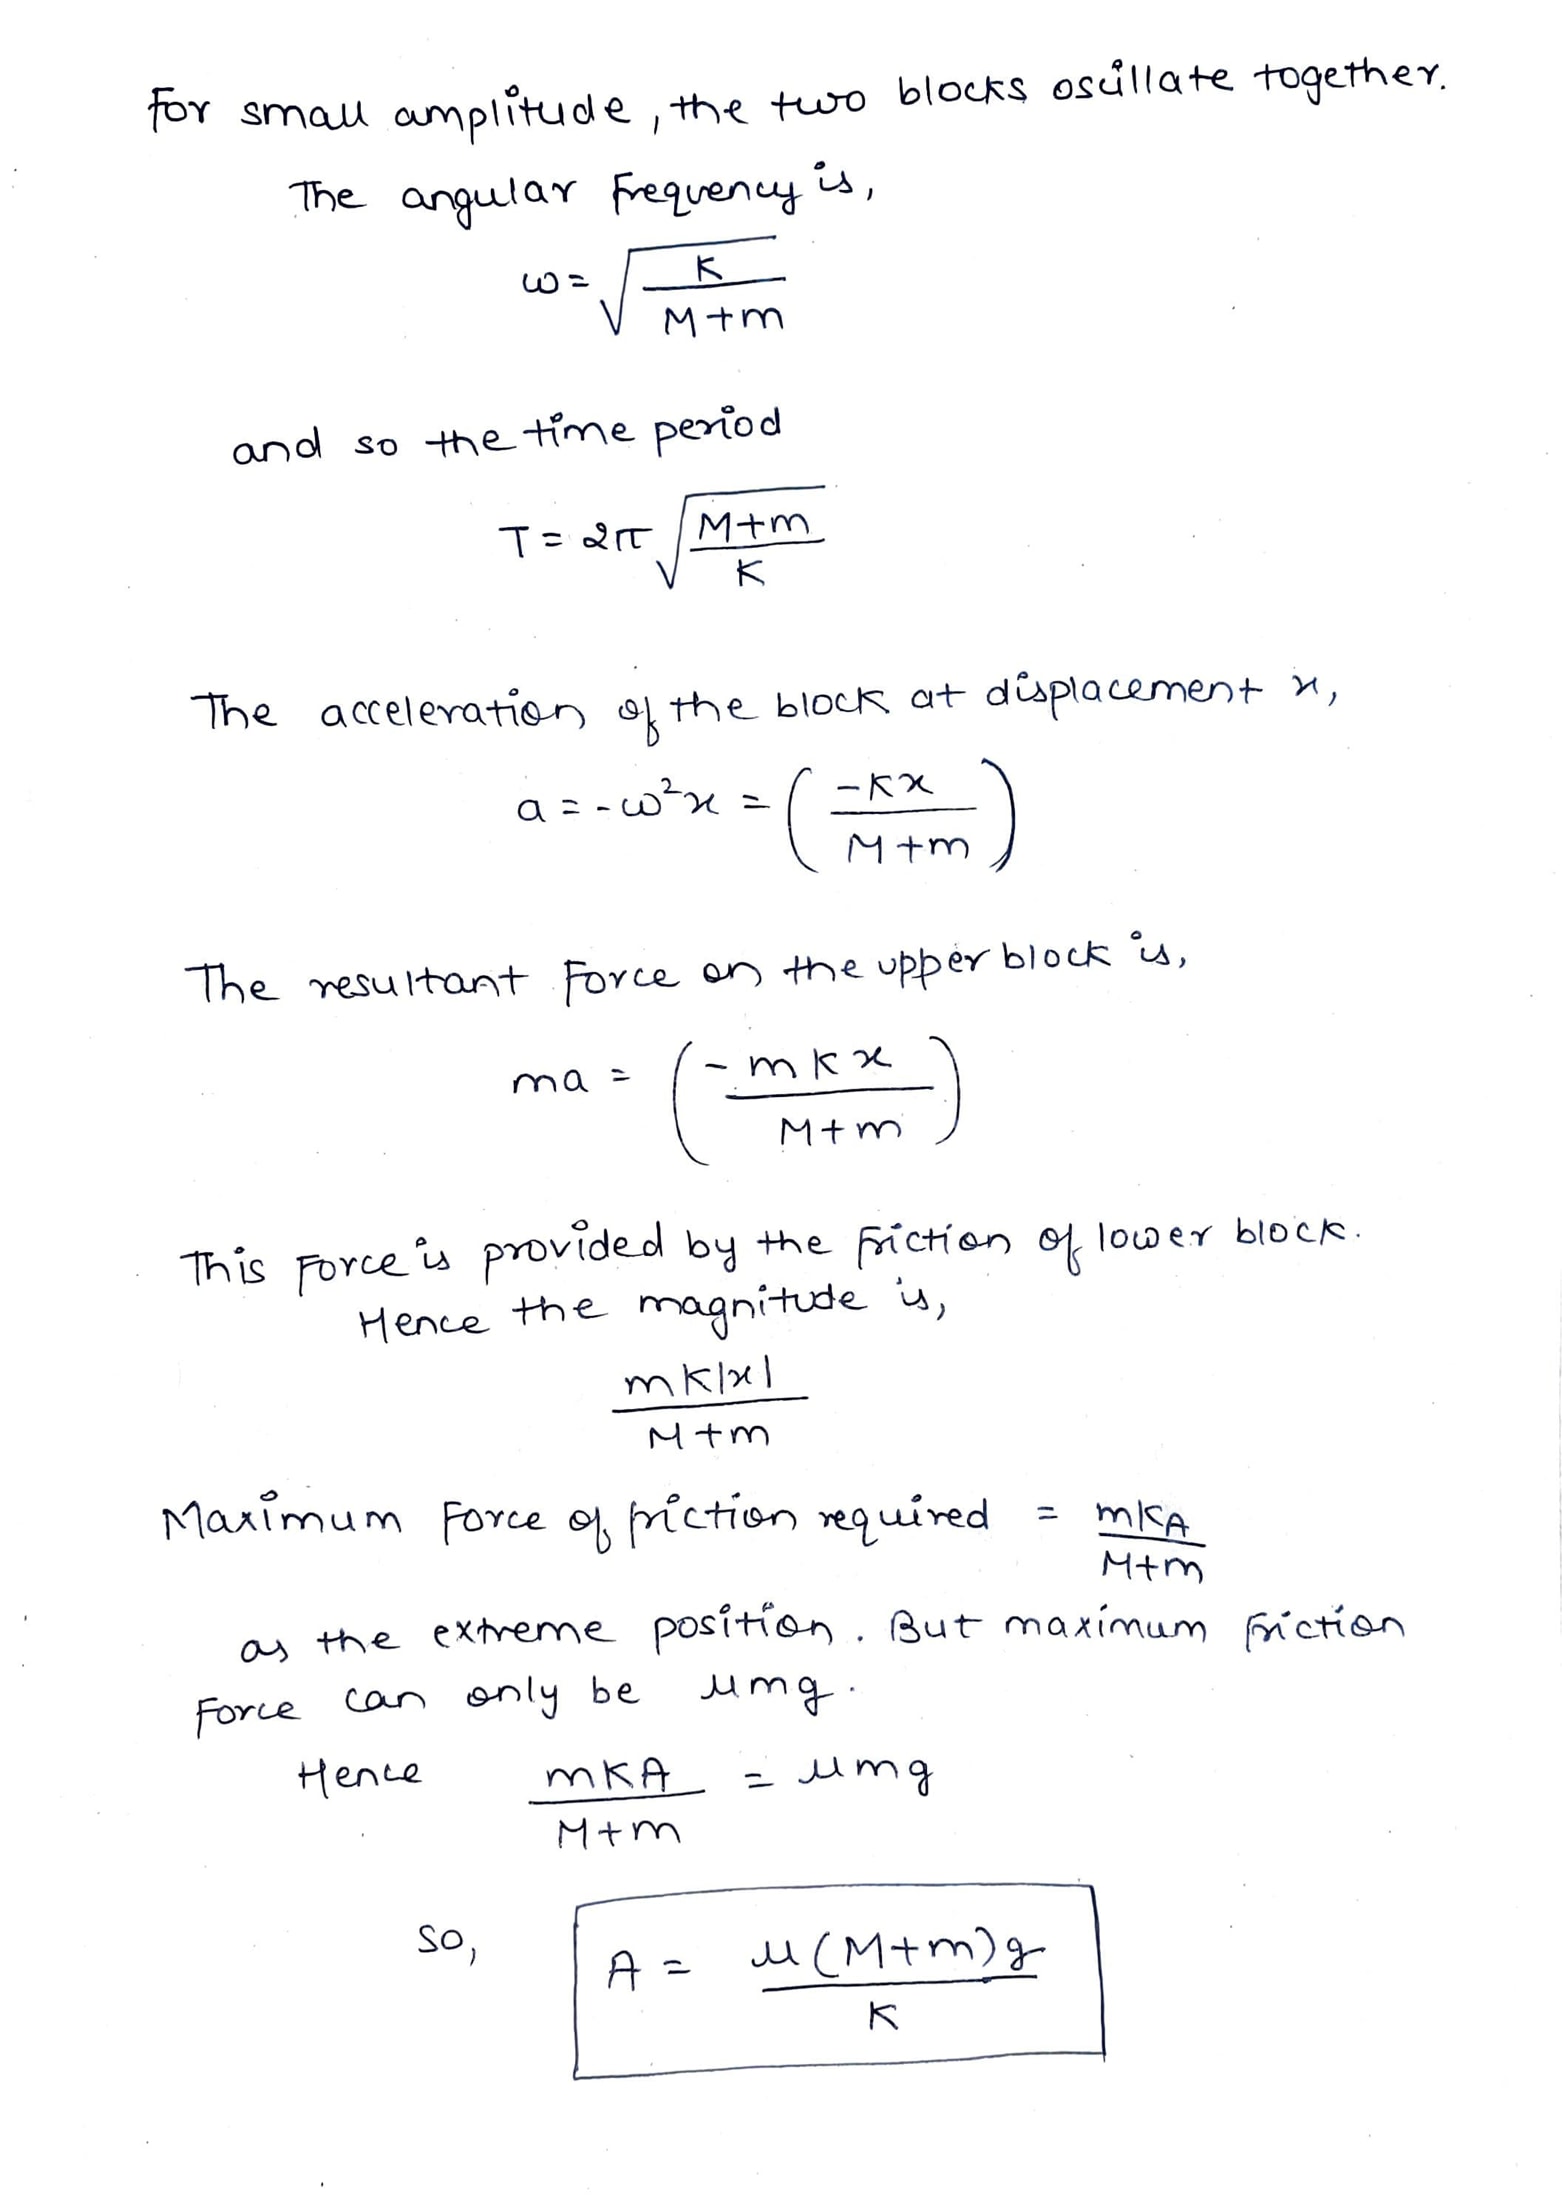 For small amplitude, the two blocks oscillate together.
The angular frequency is,
ω = √(K / M+m)
and so the time period
T = 2π √(M+m / K)
The acceleration of the block at displacement x,
a = -ω²x = (-Kx / M+m)
The resultant Force on the upper block is,
ma = (-mKx / M+m)
This Force is provided by the friction of lower block.
Hence the magnitude is,
mK|x| / M+m
Maximum Force of friction required = mKA / M+m
as the extreme position. But maximum friction
Force can only be μmg.
Hence mKA / M+m = μmg
so, A = μ(M+m)g / K